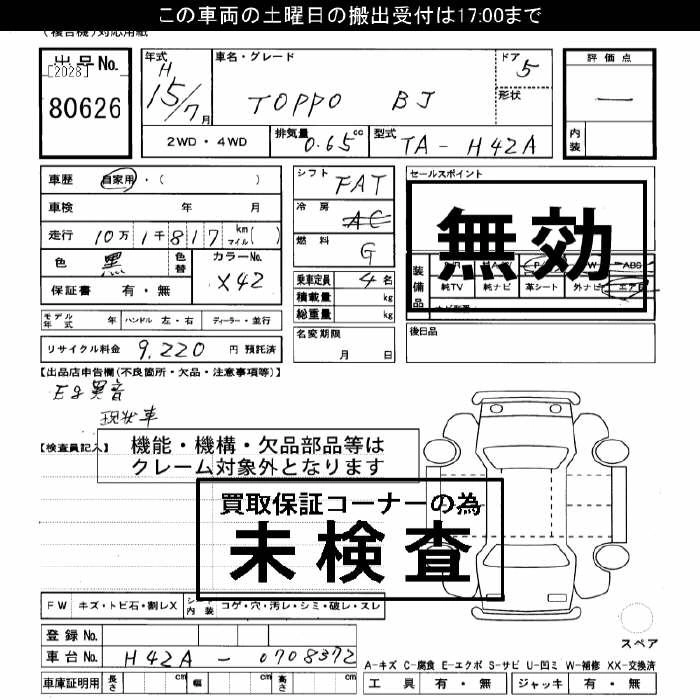 この車両の土曜日の搬出受付は17:00まで
(複合機)対応用紙
出品No.
[2028]
80626
年式
H
15/7月
車名・グレード
TOPPO BJ
ドア
5
形状
評価点
—
内装
2WD・4WD
排気量
0.65cc
型式
TA-H42A
車歴
自家用・( )
車検 年 月
走行 10万1千817 km マイル( )
色 黒
色替
カラーNo.
X42
保証書 有・無
シフト
FAT
冷房
AC
燃料
G
乗車定員 4名
積載量 kg
総重量 kg
セールスポイント
無効
装備品
P W ABS
純TV 純ナビ 革シート 外ナビ エアB
モデル年式 年 ハンドル 左・右 ディーラー・並行
名変期限
月 日
後日品
リサイクル料金 9,220 円 預託済
【出品店申告欄(不良箇所・欠品・注意事項等)】
Eg異音
現状車
【検査員記入】
機能・機構・欠品部品等は
クレーム対象外となります
買取保証コーナーの為
未検査
FW キズ・トビ石・割レX シート内装 コゲ・穴・汚レ・シミ・破レ・スレ
登録No.
車台No. H42A-0708372
車庫証明用 長さ cm 幅 cm 高さ cm
スペア
A-キズ C-腐食 E-エクボ S-サビ U-凹ミ W-補修 XX-交換済
工具 有・無 ジャッキ 有・無